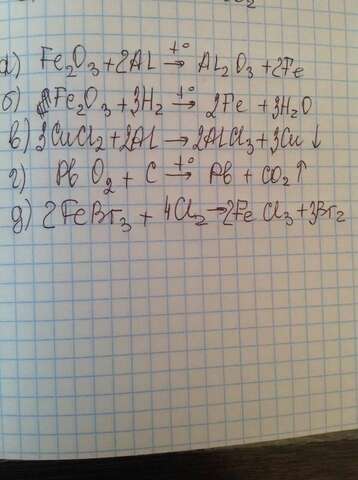 а) Fe₂O₃ + 2Al →(t°) Al₂O₃ + 2Fe
б) Fe₂O₃ + 3H₂ →(t°) 2Fe + 3H₂O
в) 3CuCl₂ + 2Al → 2AlCl₃ + 3Cu ↓
г) PbO₂ + C →(t°) Pb + CO₂ ↑
д) 2FeBr₃ + 4Cl₂ → 2FeCl₃ + 3Br₂